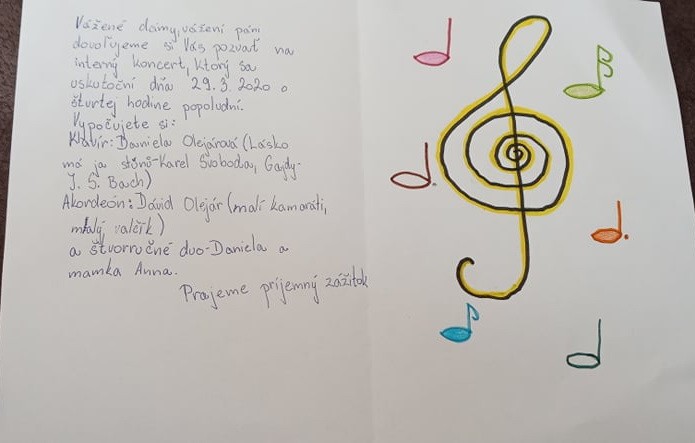 Vážené dámy, vážení páni
dovoľujeme si Vás pozvať na
interný koncert, ktorý sa
uskutoční dňa 29.3.2020 o
štvrtej hodine popoludní.
Vypočujete si:
Klavír: Daniela Olejárová (Lásko
má ja stůňu-Karel Svoboda, Gajdy-
J. S. Bach)
Akordeón: Dávid Olejár (malí kamaráti,
malý valčík)
a štvorručné duo-Daniela a
mamka Anna.
Prajeme príjemný zážitok